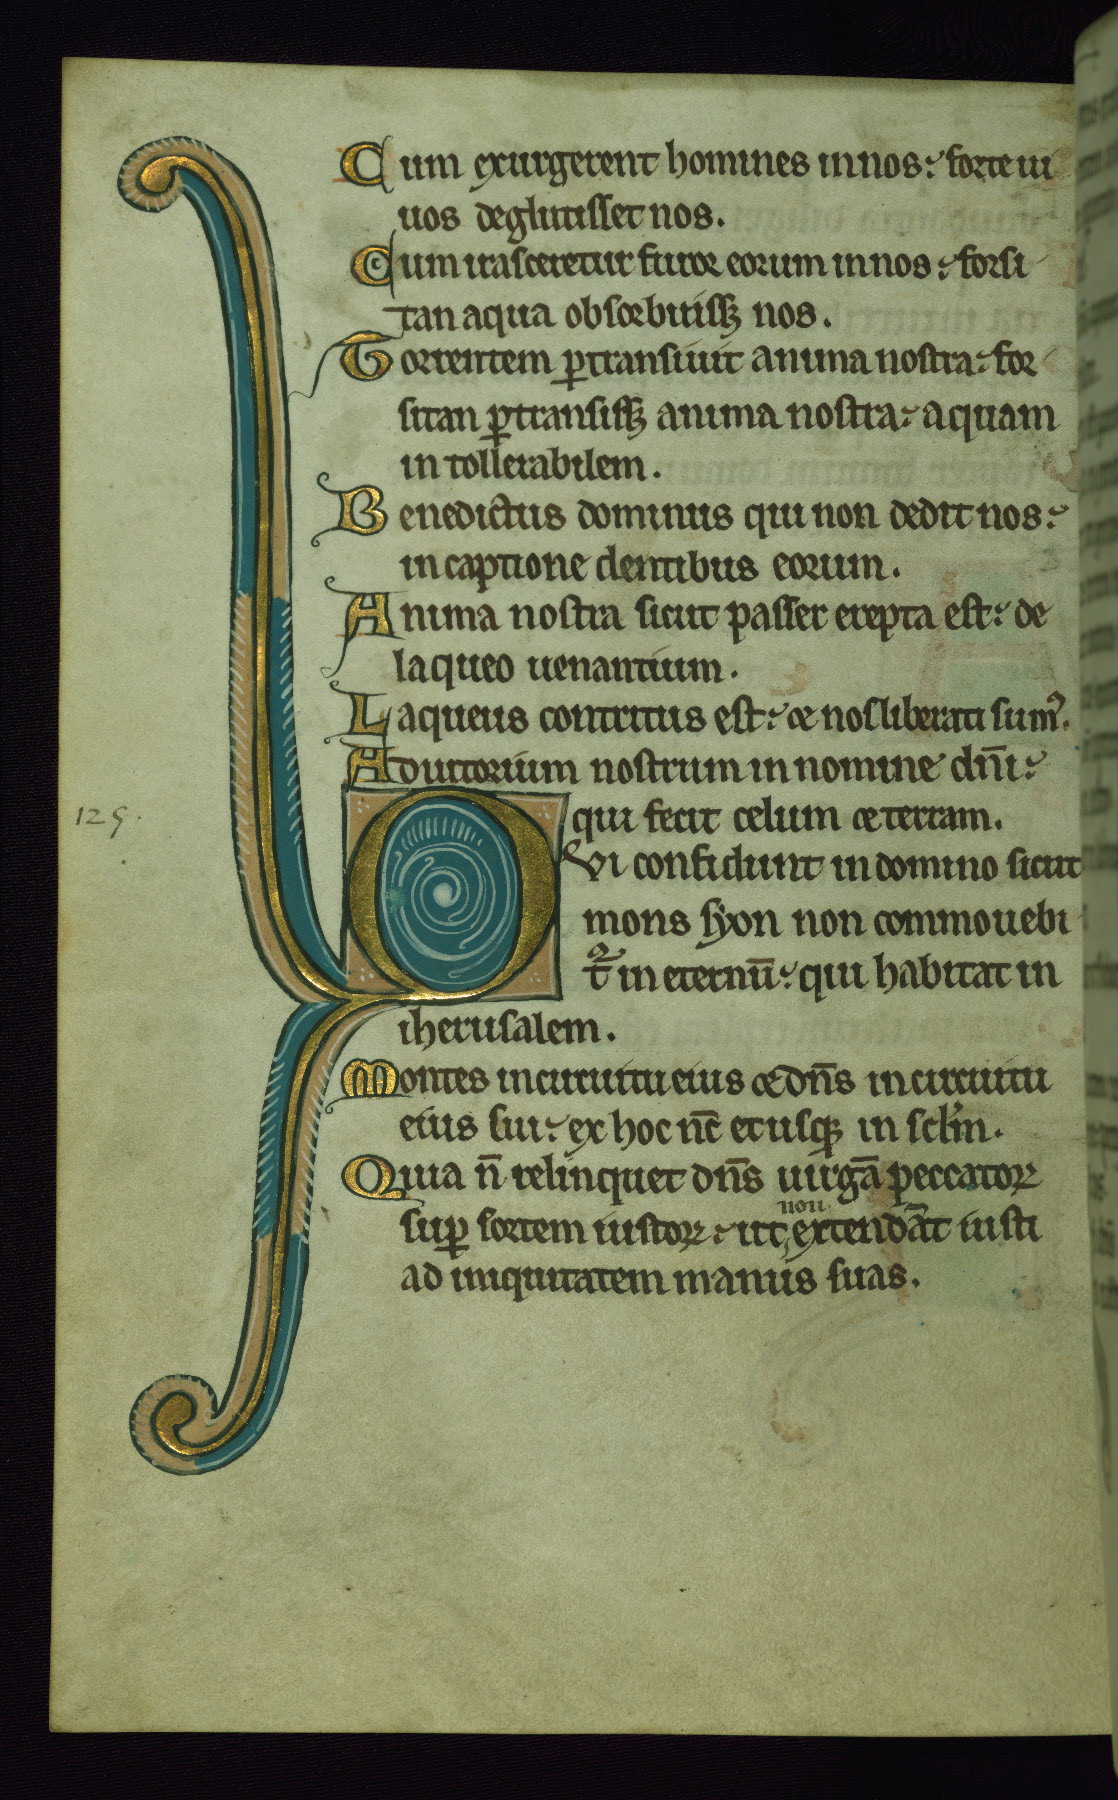 Cum exurgerent homines in nos: forte ui
uos deglutisset nos.
Cum irasceretur furor eorum in nos: forsi
tan aqua obsorbuissꝫ nos.
Torrentem ꝑtransiuit anima nostra: for
sitan ꝑtransissꝫ anima nostra: aquam
in tollerabilem.
Benedictus dominus qui non dedit nos:
in captione dentibus eorum.
Anima nostra sicut passer erepta est: de
laqueo uenantium.
Laqueus contritus est: et nos liberati sumꝰ.
Adiutorium nostrum in nomine dn̄i:
qui fecit celum et terram.
125.
QVi confidunt in domino sicut
mons syon non commouebi
t᷑ in eternū: qui habitat in
iherusalem.
Montes in circuitu eius et dn̄s in circuitu
eius sui: ex hoc nc̄ et usqꝫ in sclm̄.
Quia n̄ relinquet dn̄s uirgā peccatoꝝ
suꝑ sortem iustoꝝ: ut non extendāt iusti
ad iniquitatem manus suas.